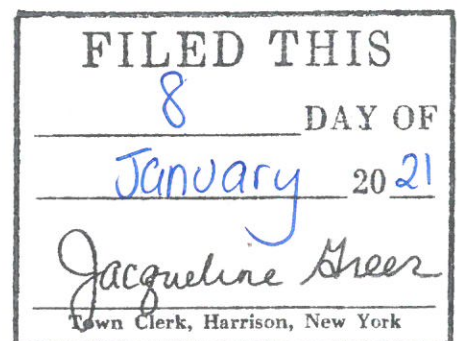 FILED THIS
8 DAY OF
January 20 21
Jacqueline Greer
Town Clerk, Harrison, New York